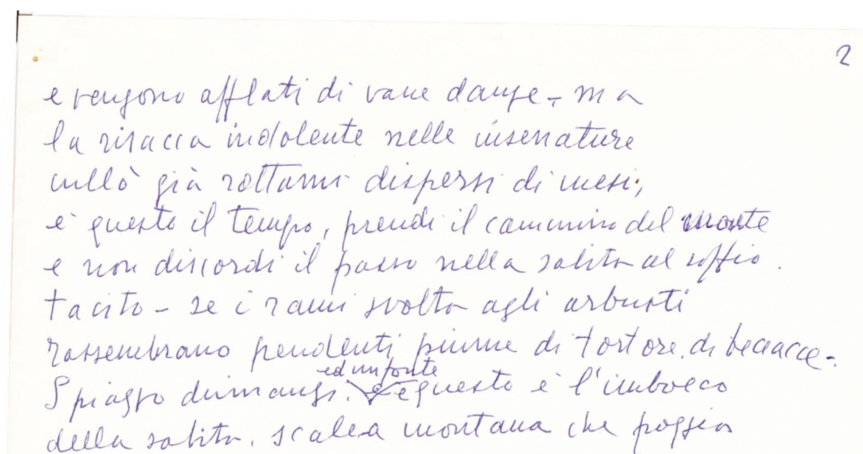 2
e vengono afflati di vane danze - ma
la risacca indolente nelle insenature
cullò già rottami dispersi di mesi;
è questo il tempo, prendi il cammino del monte
e non discordi il passo nella salita al soffio
tacito - se i rami svolta agli arbusti
rassembrano pendenti piume di tortore, di beccacce -
ed imponte
Spiazzo dimanzi. è questo è l'imbocco
della salita. scalea montana che poggia